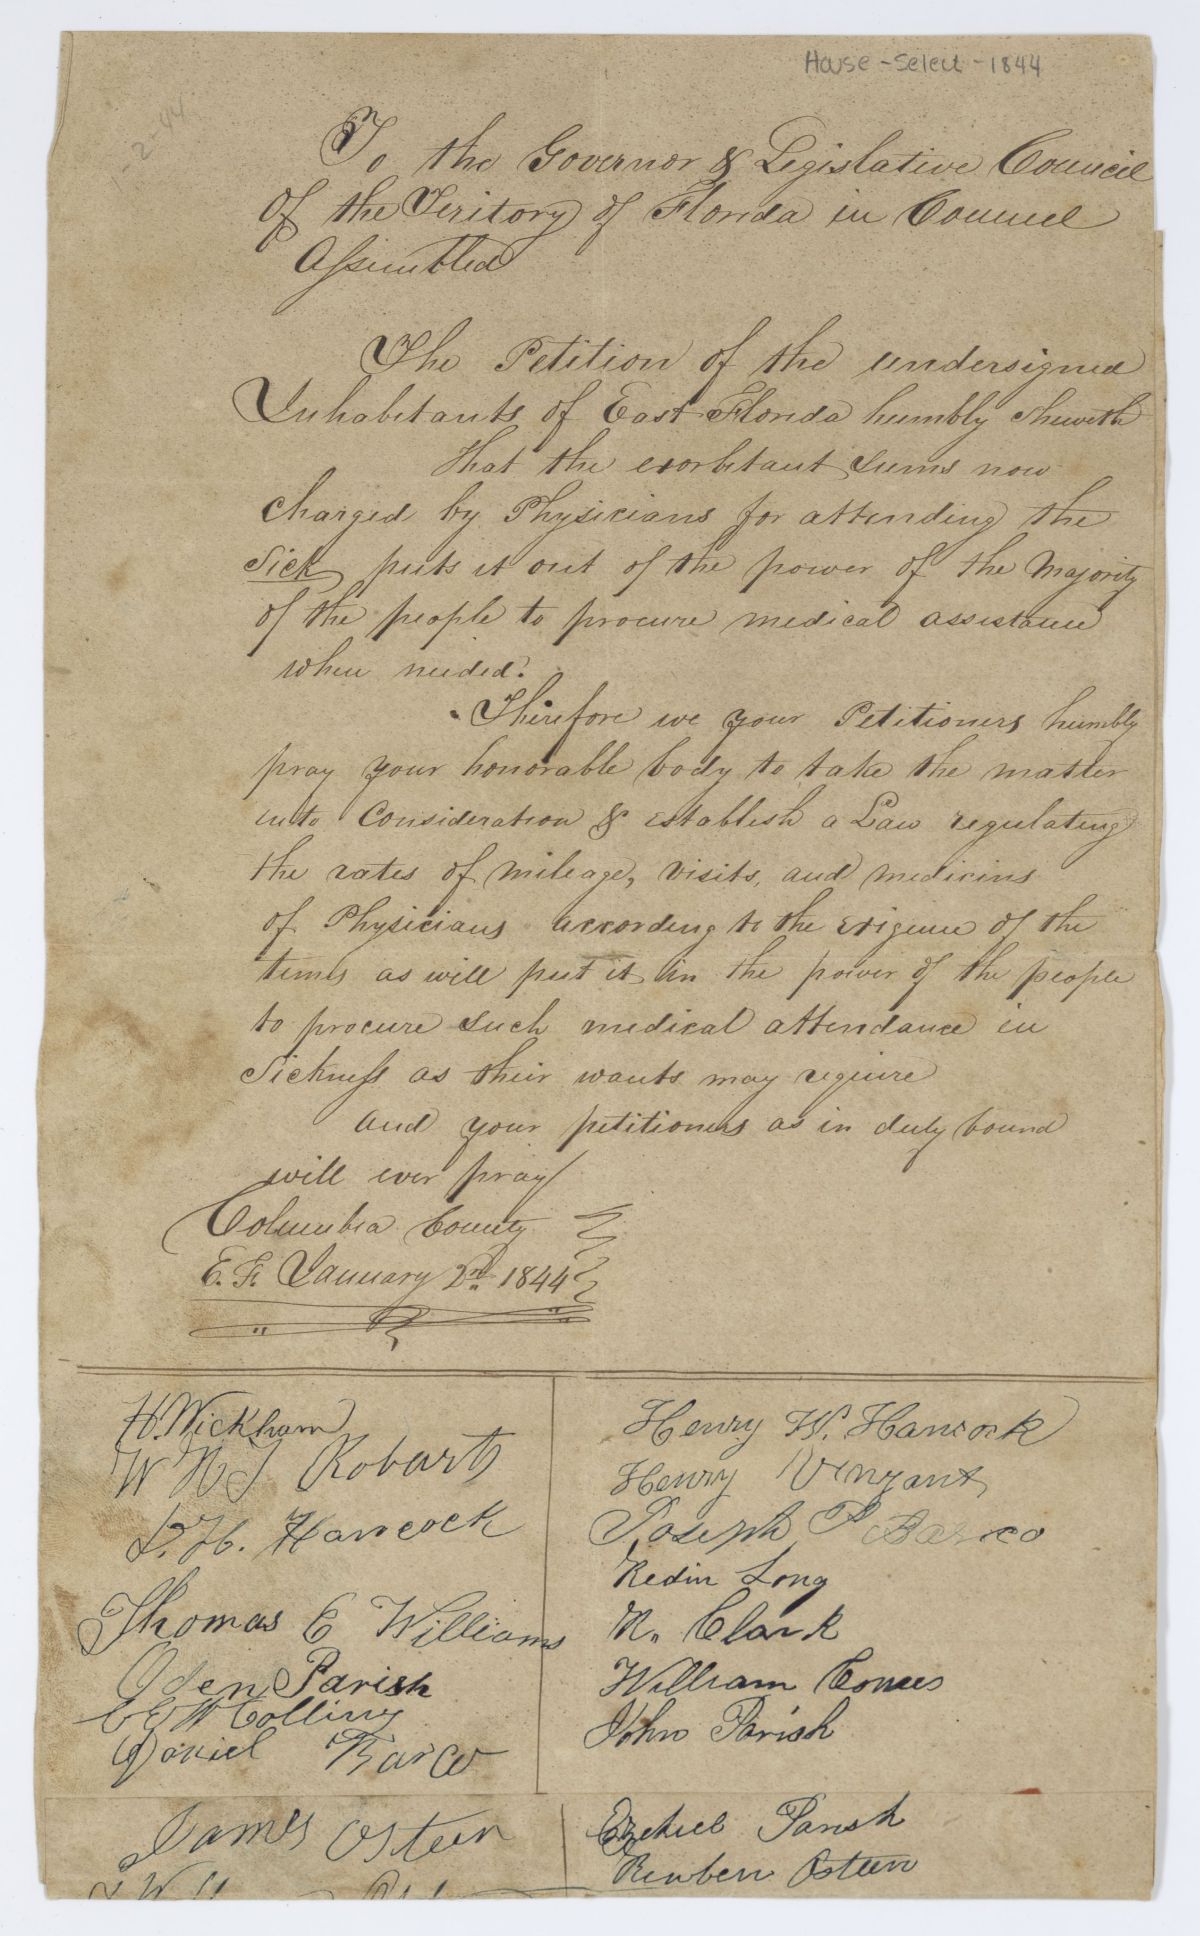 House - Select - 1844
1-2-44
To the Governor & Legislative Council
Of the Teritory of Florida in Council
Assembled
The Petition of the undersigned
Inhabitants of East Florida humbly sheweth
that the exorbitant sums now
charged by Physicians for attending the
Sick puts it out of the power of the Majority
of the people to procure medical assistance
when needed.
Therefore we your Petitioners humbly
pray your honorable body to take the matter
into Consideration & establish a Law regulating
the rates of mileage, visits, and medicins
of Physicians according to the exigence of the
times as will put it in the power of the people
to procure such medical attendance in
Sickness as their wants may require
and your petitioners as in duty bound
will ever pray
Columbia County
E. F. January 2nd 1844
H. Wickham
W H J Robarts
Thomas E Williams
Oden Parish
Daniel Barco
James Osteen
Henry W. Hancock
Henry Vinzant
Joseph P Barco
Redin Long
R. Clark
William Cones
John Parish
Ezekiel Parish
Reuben Osteen
Hancock